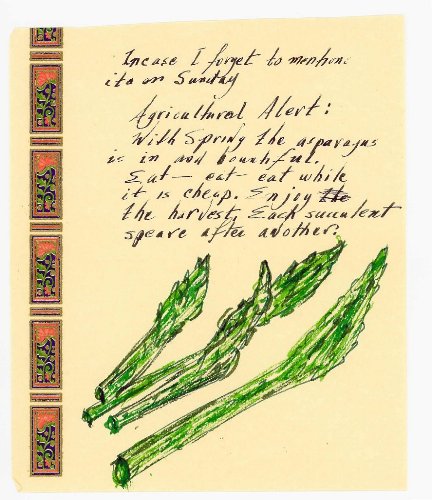 Incase I forget to mention
ito on Sunday
Agricultural Alert:
With Spring the asparagus
is in and bountiful.
Eat - eat - eat while
it is cheap. Enjoy
the harvest, Each succulent
speare after another.